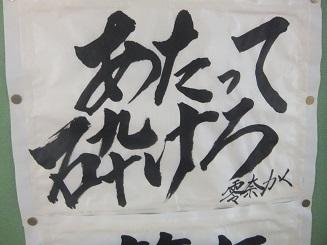 あたって
砕けろ
零奈かく